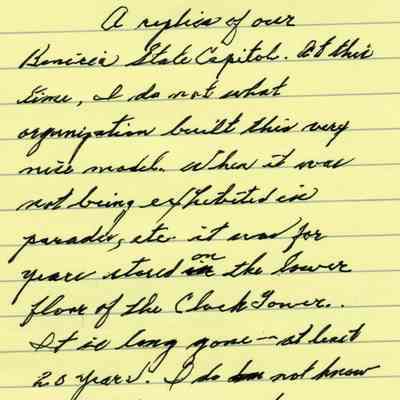 A replica of our
Benicia State Capitol. At this
time, I do not what
organization built this very
nice model. When it was
not being exhibited in
parades, etc. it was for
years stored on the lower
floor of the Clock Tower.
It is long gone - at least
20 years. I do not know